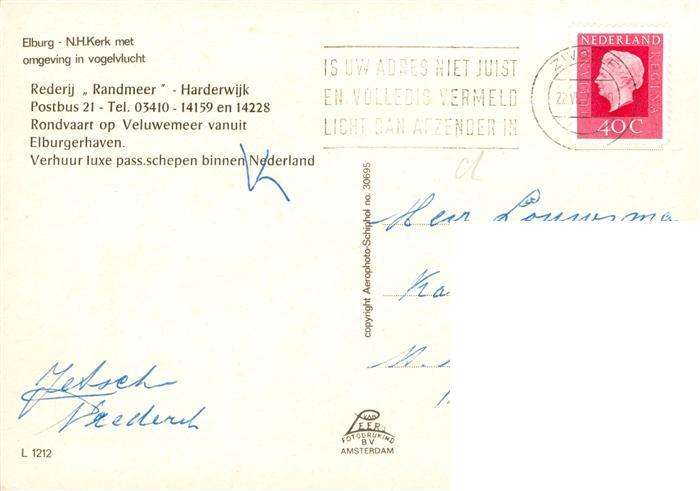 Elburg - N.H.Kerk met
omgeving in vogelvlucht
Rederij „ Randmeer " - Harderwijk
Postbus 21 - Tel. 03410 - 14159 en 14228
Rondvaart op Veluwemeer vanuit
Elburgerhaven.
Verhuur luxe pass.schepen binnen Nederland
IS UW ADRES NIET JUIST
EN VOLLEDIG VERMELD
LICHT DAN AFZENDER IN
NEDERLAND
JULIANA REGINA
40C
copyright Aerophoto-Schiphol no. 30695
Heer Louwsma
VAN
LEER's
FOTODRUKIND
B.V.
AMSTERDAM
L 1212